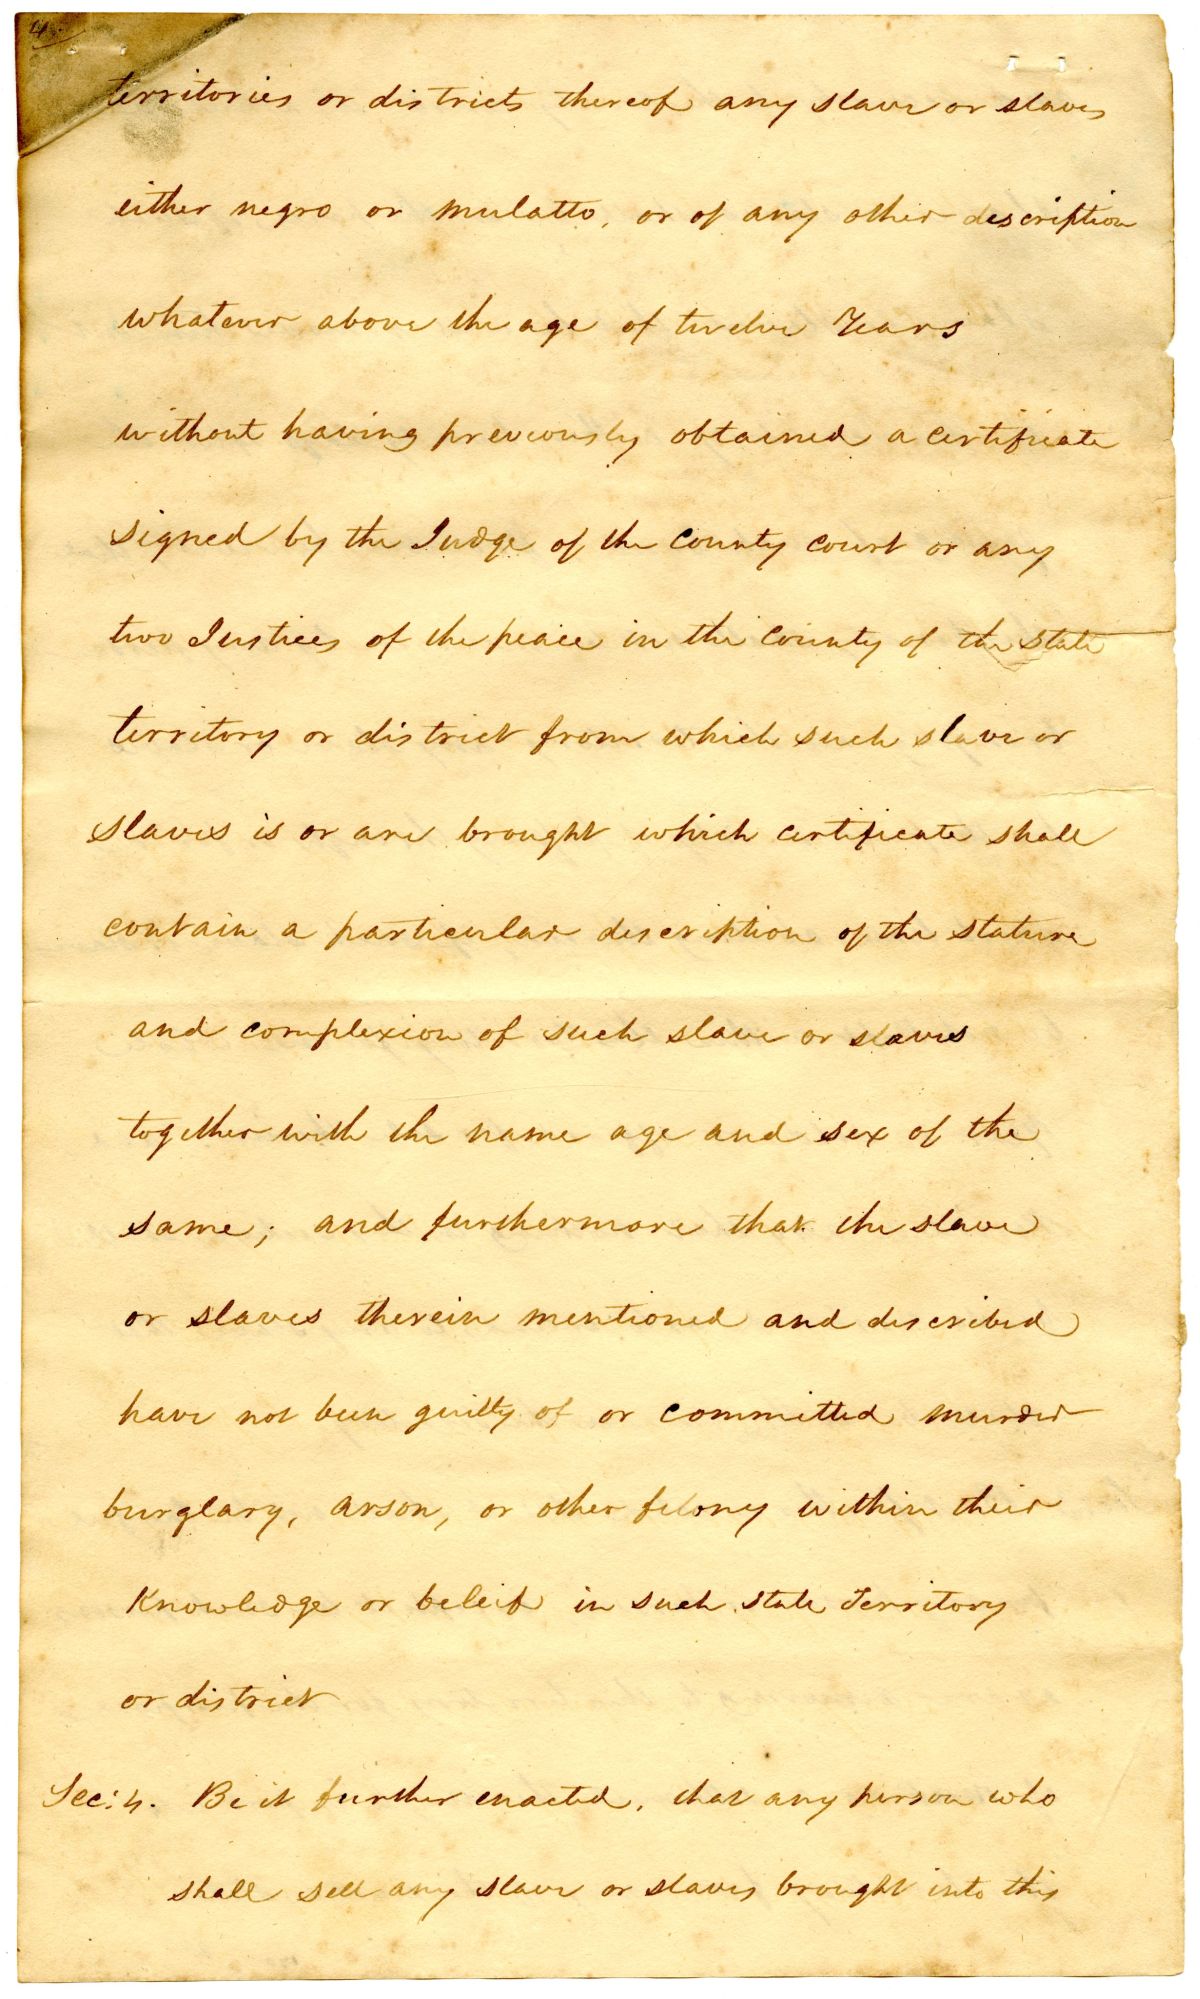 4.
territories or districts thereof any slave or slaves
either negro or mulatto, or of any other description
whatever above the age of twelve Years
without having previously obtained a certificate
signed by the Judge of the county court or any
two Justices of the peace in the county of the state
territory or district from which such slave or
slaves is or are brought which certificate shall
contain a particular description of the stature
and complexion of such slave or slaves
together with the name age and sex of the
same; and furthermore that the slave
or slaves therein mentioned and described
have not been guilty of or committed murder
burglary, arson, or other felony within their
Knowledge or beleif in such state Territory
or district
Sec: 4. Be it further enacted, that any person who
shall sell any slave or slaves brought into this